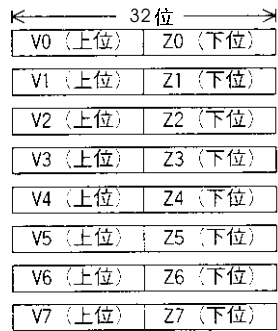 32位
V0（上位） Z0（下位）
V1（上位） Z1（下位）
V2（上位） Z2（下位）
V3（上位） Z3（下位）
V4（上位） Z4（下位）
V5（上位） Z5（下位）
V6（上位） Z6（下位）
V7（上位） Z7（下位）